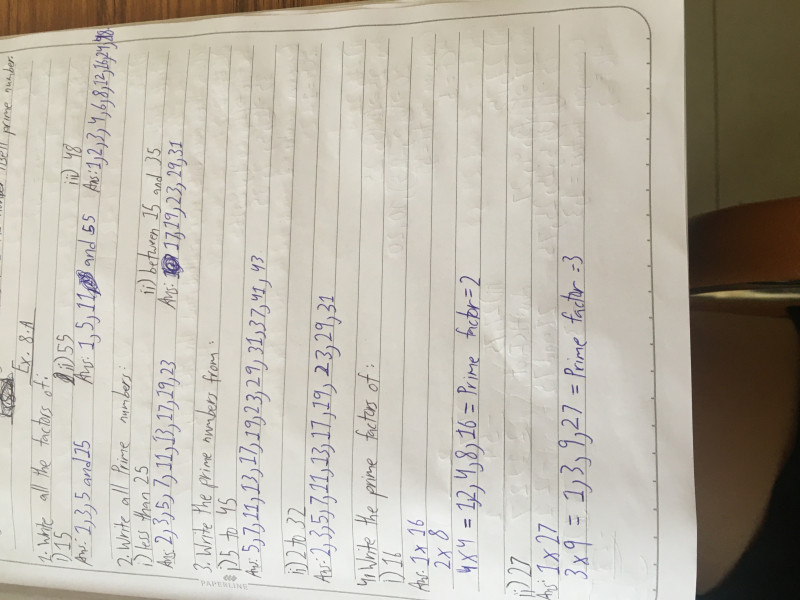 itself prime numbers
Ex. 8.A
1. Write all the factors of:
i) 15 ii) 55 iii) 48
Ans: 1,3,5 and 15 Ans: 1,5,11 and 55 Ans: 1,2,3,4,6,8,12,16,24,48
2. Write all Prime numbers:
i) less than 25 ii) between 15 and 35
Ans: 2,3,5,7,11,13,17,19,23 Ans: 17,19,23,29,31
3. Write the prime numbers from:
i) 5 to 45
Ans: 5,7,11,13,17,19,23,29,31,37,41,43
i) 2 to 32
Ans: 2,3,5,7,11,13,17,19,23,29,31
4. Write the prime factors of:
i) 16
Ans: 1 x 16
2 x 8
4 x 4 = 1,2,4,8,16 = Prime factor = 2
ii) 27
An: 1 x 27
3 x 9 = 1,3,9,27 = Prime factor = 3
PAPERLINE